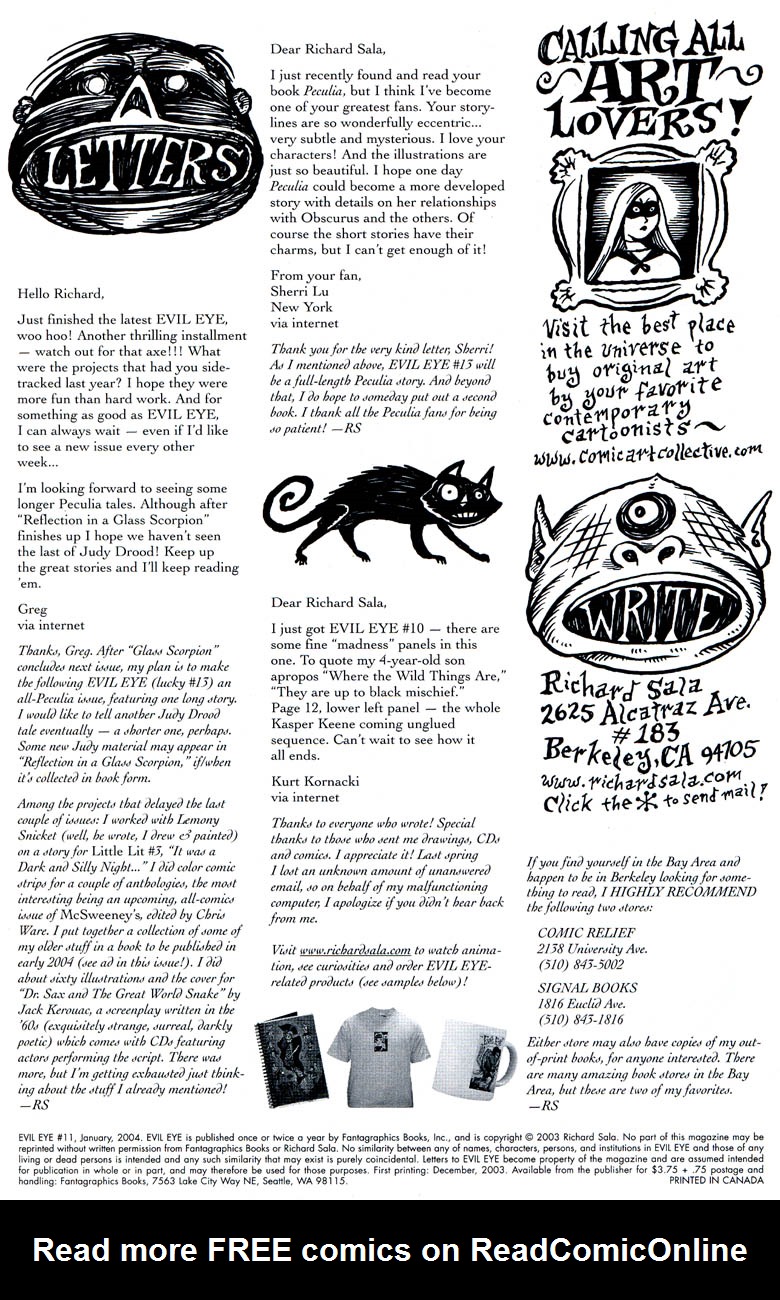 LETTERS
Hello Richard,
Just finished the latest EVIL EYE,
woo hoo! Another thrilling installment
— watch out for that axe!!! What
were the projects that had you side-
tracked last year? I hope they were
more fun than hard work. And for
something as good as EVIL EYE,
I can always wait — even if I'd like
to see a new issue every other
week...
I'm looking forward to seeing some
longer Peculia tales. Although after
“Reflection in a Glass Scorpion”
finishes up I hope we haven't seen
the last of Judy Drood! Keep up
the great stories and I'll keep reading
'em.
Greg
via internet
Thanks, Greg. After “Glass Scorpion”
concludes next issue, my plan is to make
the following EVIL EYE (lucky #13) an
all-Peculia issue, featuring one long story.
I would like to tell another Judy Drood
tale eventually — a shorter one, perhaps.
Some new Judy material may appear in
“Reflection in a Glass Scorpion,” if/when
it's collected in book form.
Among the projects that delayed the last
couple of issues: I worked with Lemony
Snicket (well, he wrote, I drew & painted)
on a story for Little Lit #3, “It was a
Dark and Silly Night...” I did color comic
strips for a couple of anthologies, the most
interesting being an upcoming, all-comics
issue of McSweeney's, edited by Chris
Ware. I put together a collection of some of
my older stuff in a book to be published in
early 2004 (see ad in this issue!). I did
about sixty illustrations and the cover for
“Dr. Sax and The Great World Snake” by
Jack Kerouac, a screenplay written in the
'60s (exquisitely strange, surreal, darkly
poetic) which comes with CDs featuring
actors performing the script. There was
more, but I'm getting exhausted just think-
ing about the stuff I already mentioned!
—RS
Dear Richard Sala,
I just recently found and read your
book Peculia, but I think I've become
one of your greatest fans. Your story-
lines are so wonderfully eccentric...
very subtle and mysterious. I love your
characters! And the illustrations are
just so beautiful. I hope one day
Peculia could become a more developed
story with details on her relationships
with Obscurus and the others. Of
course the short stories have their
charms, but I can't get enough of it!
From your fan,
Sherri Lu
New York
via internet
Thank you for the very kind letter, Sherri!
As I mentioned above, EVIL EYE #13 will
be a full-length Peculia story. And beyond
that, I do hope to someday put out a second
book. I thank all the Peculia fans for being
so patient! —RS
Dear Richard Sala,
I just got EVIL EYE #10 — there are
some fine “madness” panels in this
one. To quote my 4-year-old son
apropos “Where the Wild Things Are,”
“They are up to black mischief.”
Page 12, lower left panel — the whole
Kasper Keene coming unglued
sequence. Can't wait to see how it
all ends.
Kurt Kornacki
via internet
Thanks to everyone who wrote! Special
thanks to those who sent me drawings, CDs
and comics. I appreciate it! Last spring
I lost an unknown amount of unanswered
email, so on behalf of my malfunctioning
computer, I apologize if you didn't hear back
from me.
Visit www.richardsala.com to watch anima-
tion, see curiosities and order EVIL EYE-
related products (see samples below)!
CALLING ALL
ART
LOVERS!
Visit the best place
in the universe to
buy original art
by your favorite
contemporary
cartoonists~
www.comicartcollective.com
WRITE
Richard Sala
2625 Alcatraz Ave.
#183
Berkeley, CA 94705
www.richardsala.com
Click the * to send mail!
If you find yourself in the Bay Area and
happen to be in Berkeley looking for some-
thing to read, I HIGHLY RECOMMEND
the following two stores:
COMIC RELIEF
2138 University Ave.
(510) 843-5002
SIGNAL BOOKS
1816 Euclid Ave.
(510) 843-1816
Either store may also have copies of my out-
of-print books, for anyone interested. There
are many amazing book stores in the Bay
Area, but these are two of my favorites.
—RS
EVIL EYE #11, January, 2004. EVIL EYE is published once or twice a year by Fantagraphics Books, Inc., and is copyright © 2003 Richard Sala. No part of this magazine may be
reprinted without written permission from Fantagraphics Books or Richard Sala. No similarity between any of names, characters, persons, and institutions in EVIL EYE and those of any
living or dead persons is intended and any such similarity that may exist is purely coincidental. Letters to EVIL EYE become property of the magazine and are assumed intended
for publication in whole or in part, and may therefore be used for those purposes. First printing: December, 2003. Available from the publisher for $3.75 + .75 postage and
handling: Fantagraphics Books, 7563 Lake City Way NE, Seattle, WA 98115. PRINTED IN CANADA
Read more FREE comics on ReadComicOnline